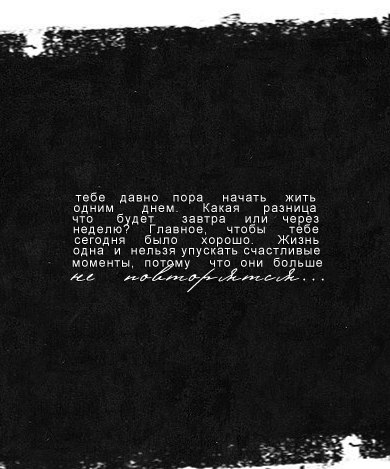 тебе давно пора начать жить
одним днем. Какая разница
что будет завтра или через
неделю? Главное, чтобы тебе
сегодня было хорошо. Жизнь
одна и нельзя упускать счастливые
моменты, потому что они больше
не повторятся...